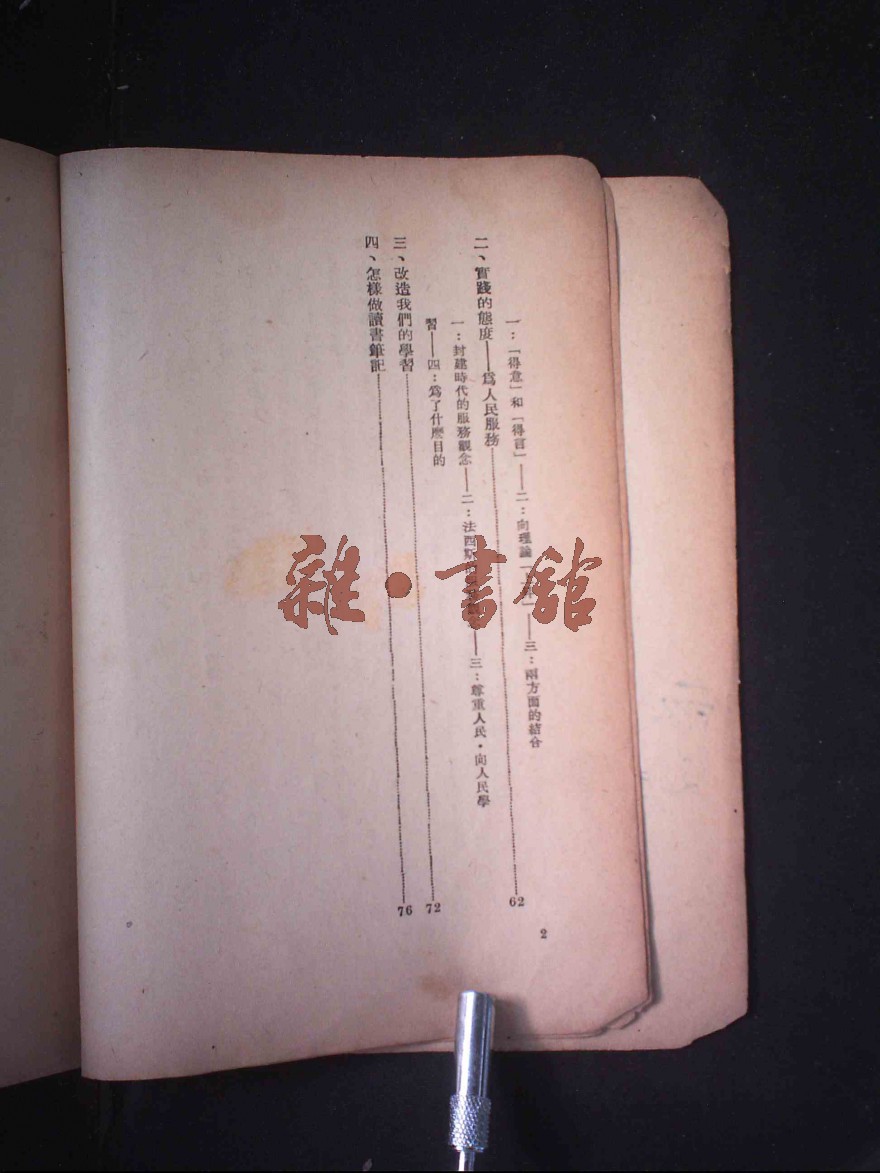 一：「得意」和「得言」——二：向理論「 」——三：兩方面的結合
二、實踐的態度——爲人民服務 62
一：封建時代的服務觀念——二：法西斯 ——三：尊重人民・向人民學
習——四：爲了什麼目的
三、改造我們的學習 72
四、怎樣做讀書筆記 76
2
雜・書館